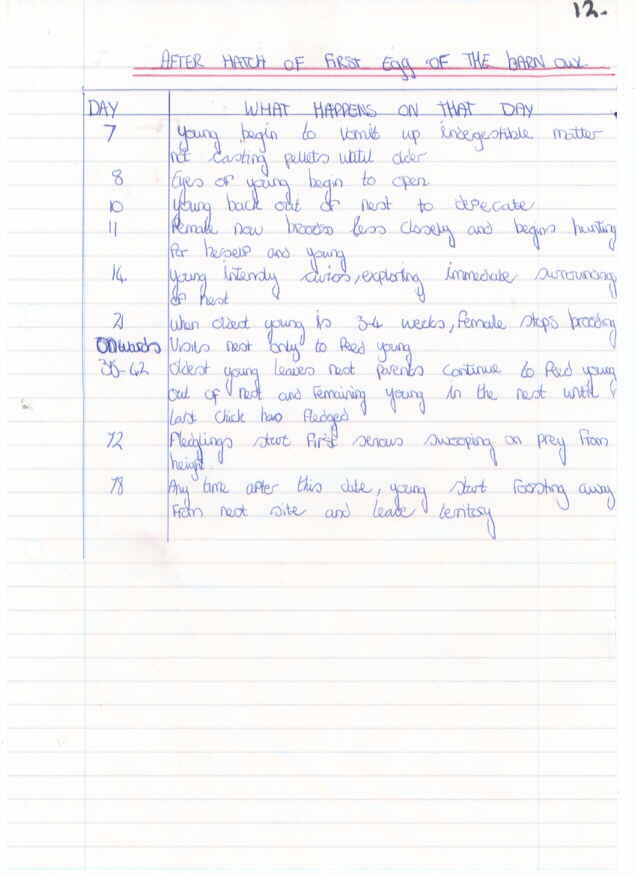 12.
AFTER HATCH OF FIRST Egg OF THE BARN OWL.
DAY WHAT HAPPENS ON THAT DAY
7 Young begin to vomit up indegestible matter
not casting pellets until older
8 Eyes of young begin to open
10 Young back out of nest to defecate
11 Female now broods less closely and begins hunting
for herself and young
14. Young intensly curios, exploring immediate surrounding
of nest
21 When oldest young is 3-4 weeks, female stops brooding
ONwards Visits nest only to feed young
35-42 Oldest young leaves nest parents continue to feed young
out of nest and remaining young in the nest until
last chick has fledged
72 Fledglings start first serious swooping on prey from
height.
78 Any time after this date, young start roosting away
from nest site and leave territory